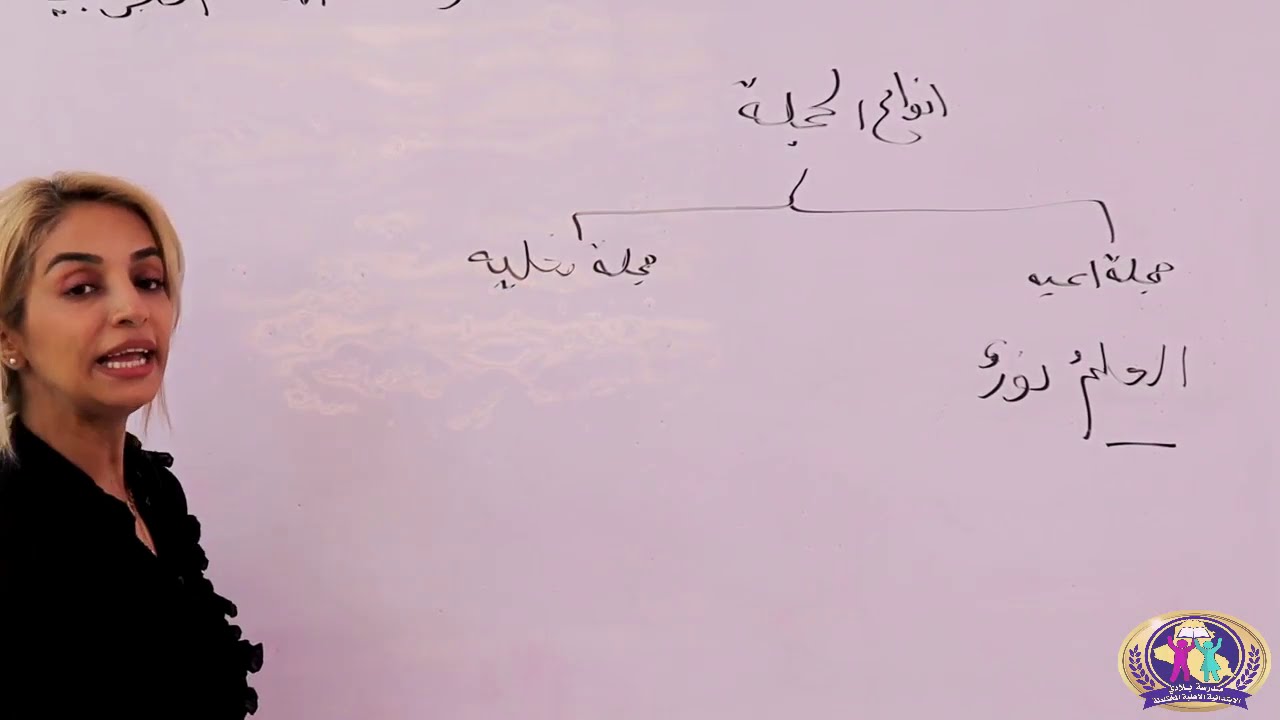 انواع الجملة
جملة اسميه
جملة فعليه
العلمُ نورٌ
مدرسة بلادي
الابتدائية الاهلية المختلطة